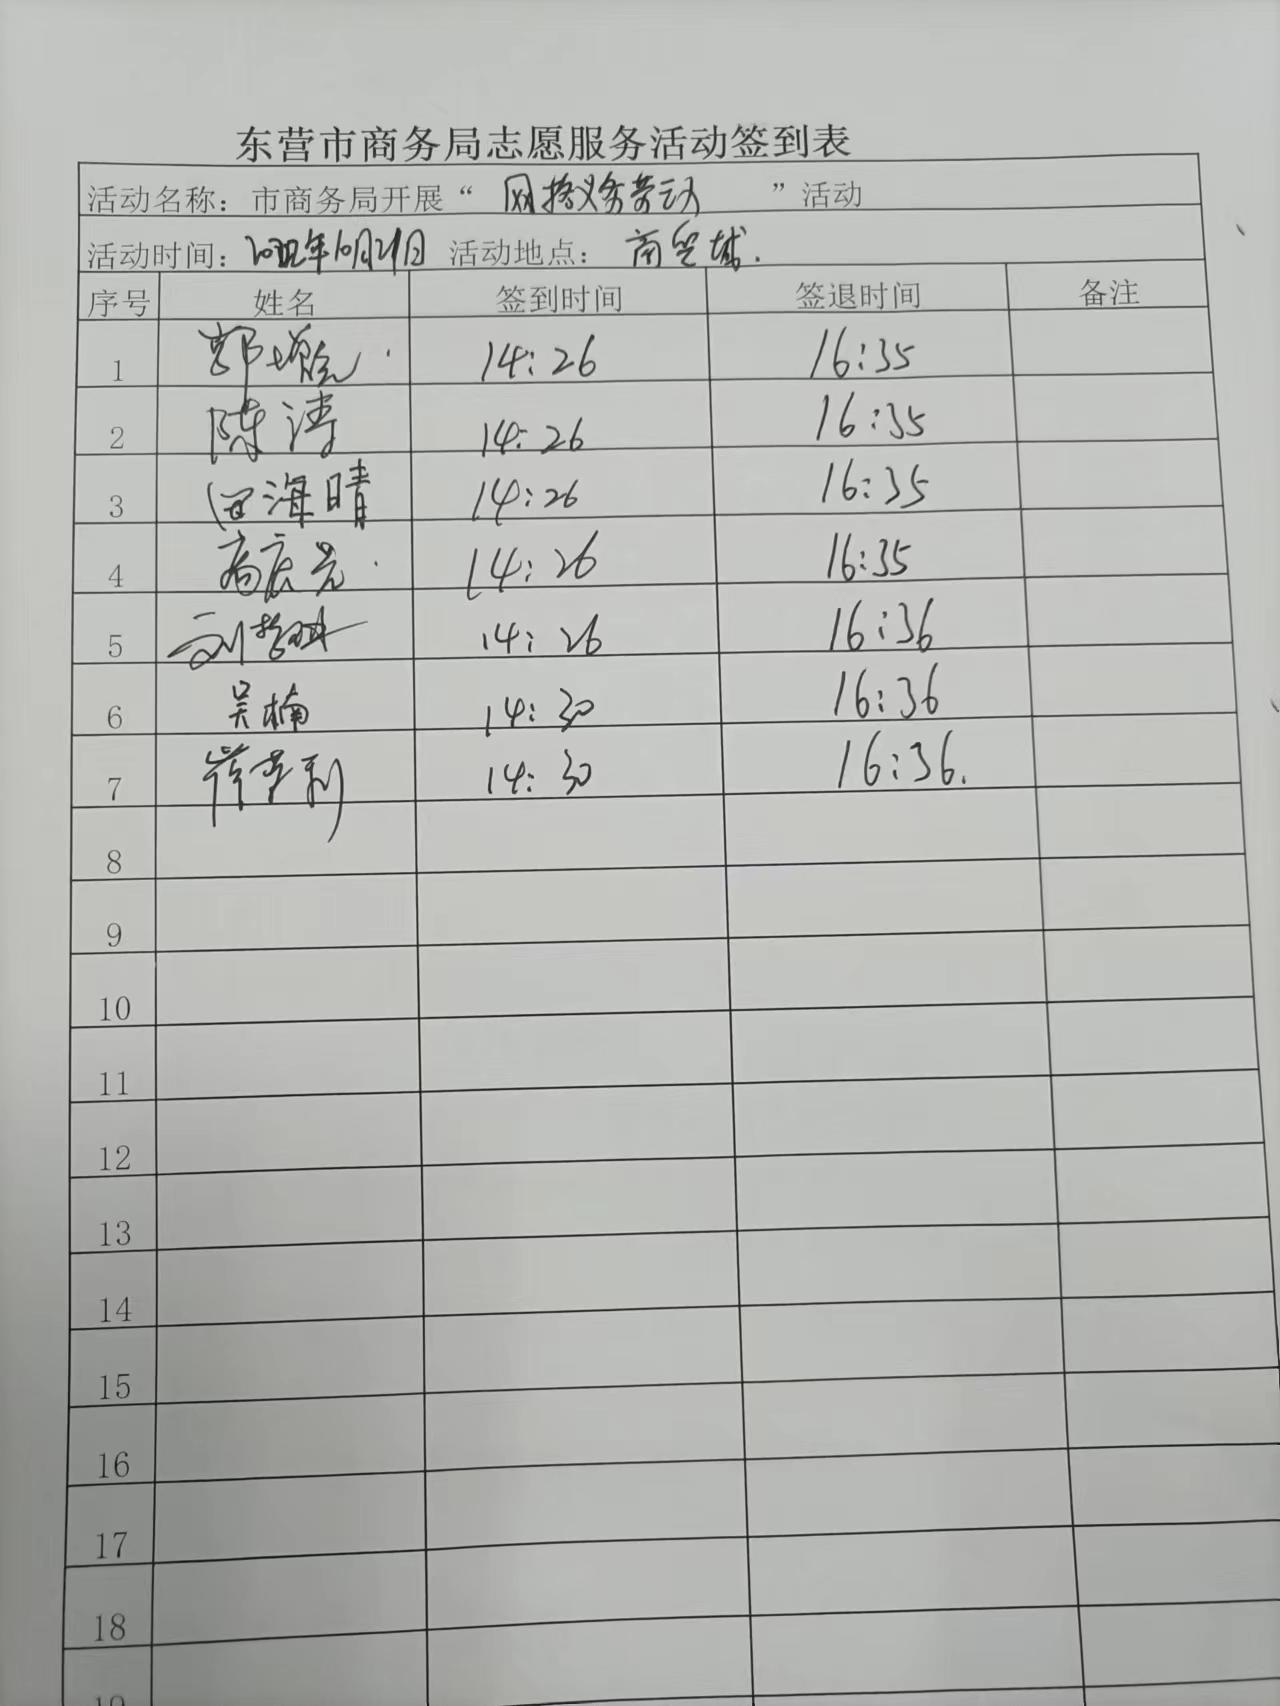 东营市商务局志愿服务活动签到表
活动名称：市商务局开展“网格义务劳动”活动
活动时间：年10月21日 活动地点：商贸城.
序号 姓名 签到时间 签退时间 备注
1 14:26 16:35
2 陈涛 14:26 16:35
3 田海晴 14:26 16:35
4 高庆光 14:26 16:35
5 刘 14:26 16:36
6 吴楠 14:30 16:36
7 14:30 16:36.
8
9
10
11
12
13
14
15
16
17
18
19